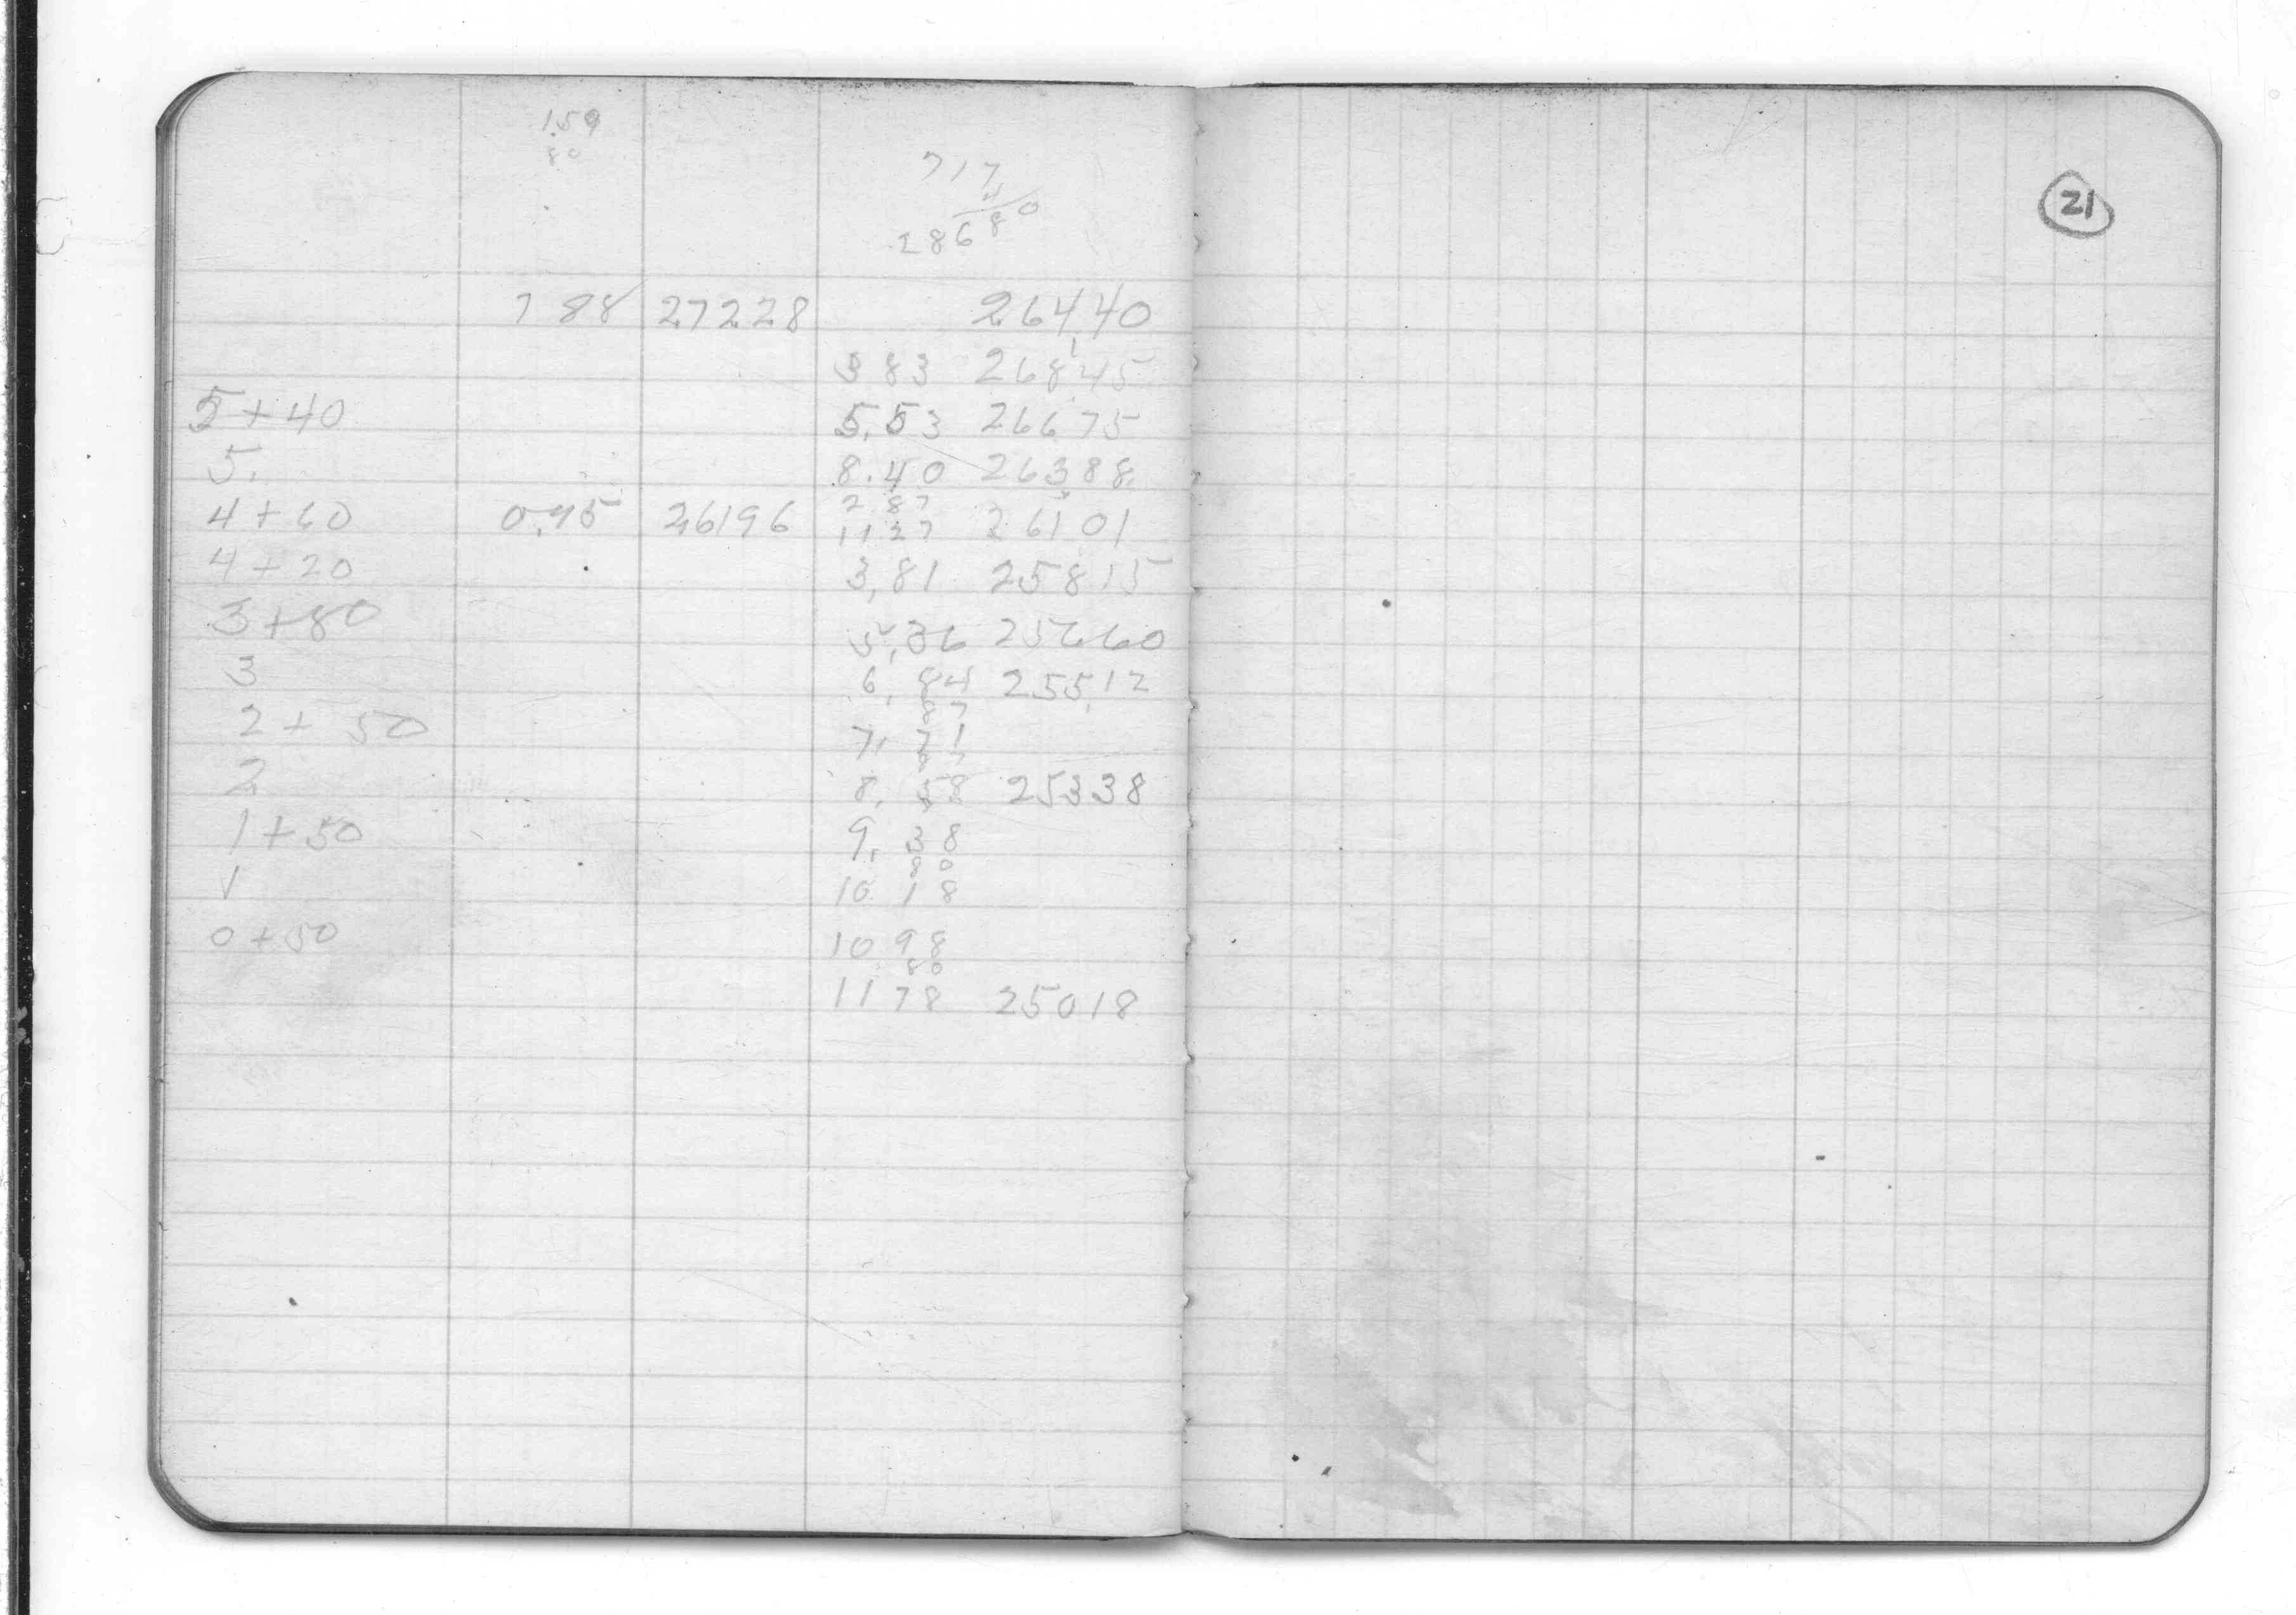 1.59
80
717
4
28680
21
7 88 27228 26440
3 83 26845
5+40 5.53 26675
5. 8.40 26388
2 87
4+60 0.95 26196 11 27 26101
4+20 3,81 25815
3+80 5,36 25660
3 6, 84 25512
87
2+50 7, 71
2 8, 58 25338
1+50 9, 38
80
1 10 18
0+50 10 98
80
11 78 25018